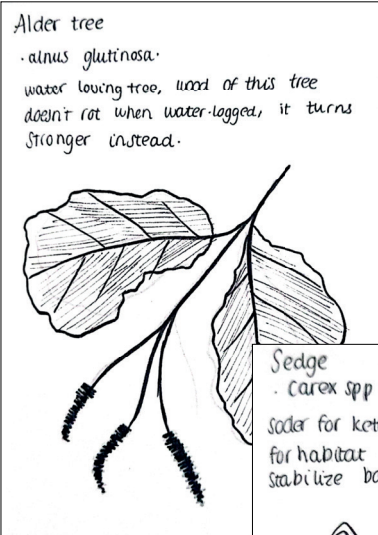 Alder tree
· alnus glutinosa·
water loving tree, wood of this tree
doesn't rot when water-logged, it turns
stronger instead.
Sedge
· Carex spp
for habitat
Stabilize